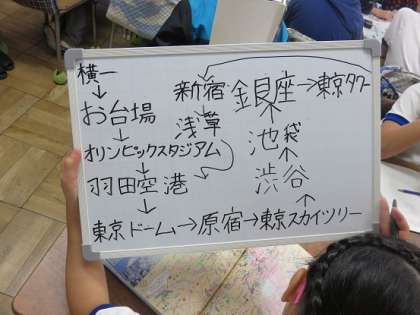 横一
↓
お台場
↓
オリンピックスタジアム
↓
羽田空港
↓
東京ドーム→原宿→東京スカイツリー
↑
渋谷
↑
池袋
↑
銀座→東京タワー
新宿
↓
浅草